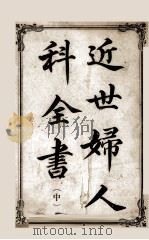 近世婦人
科全書
(中)
mtoou.info